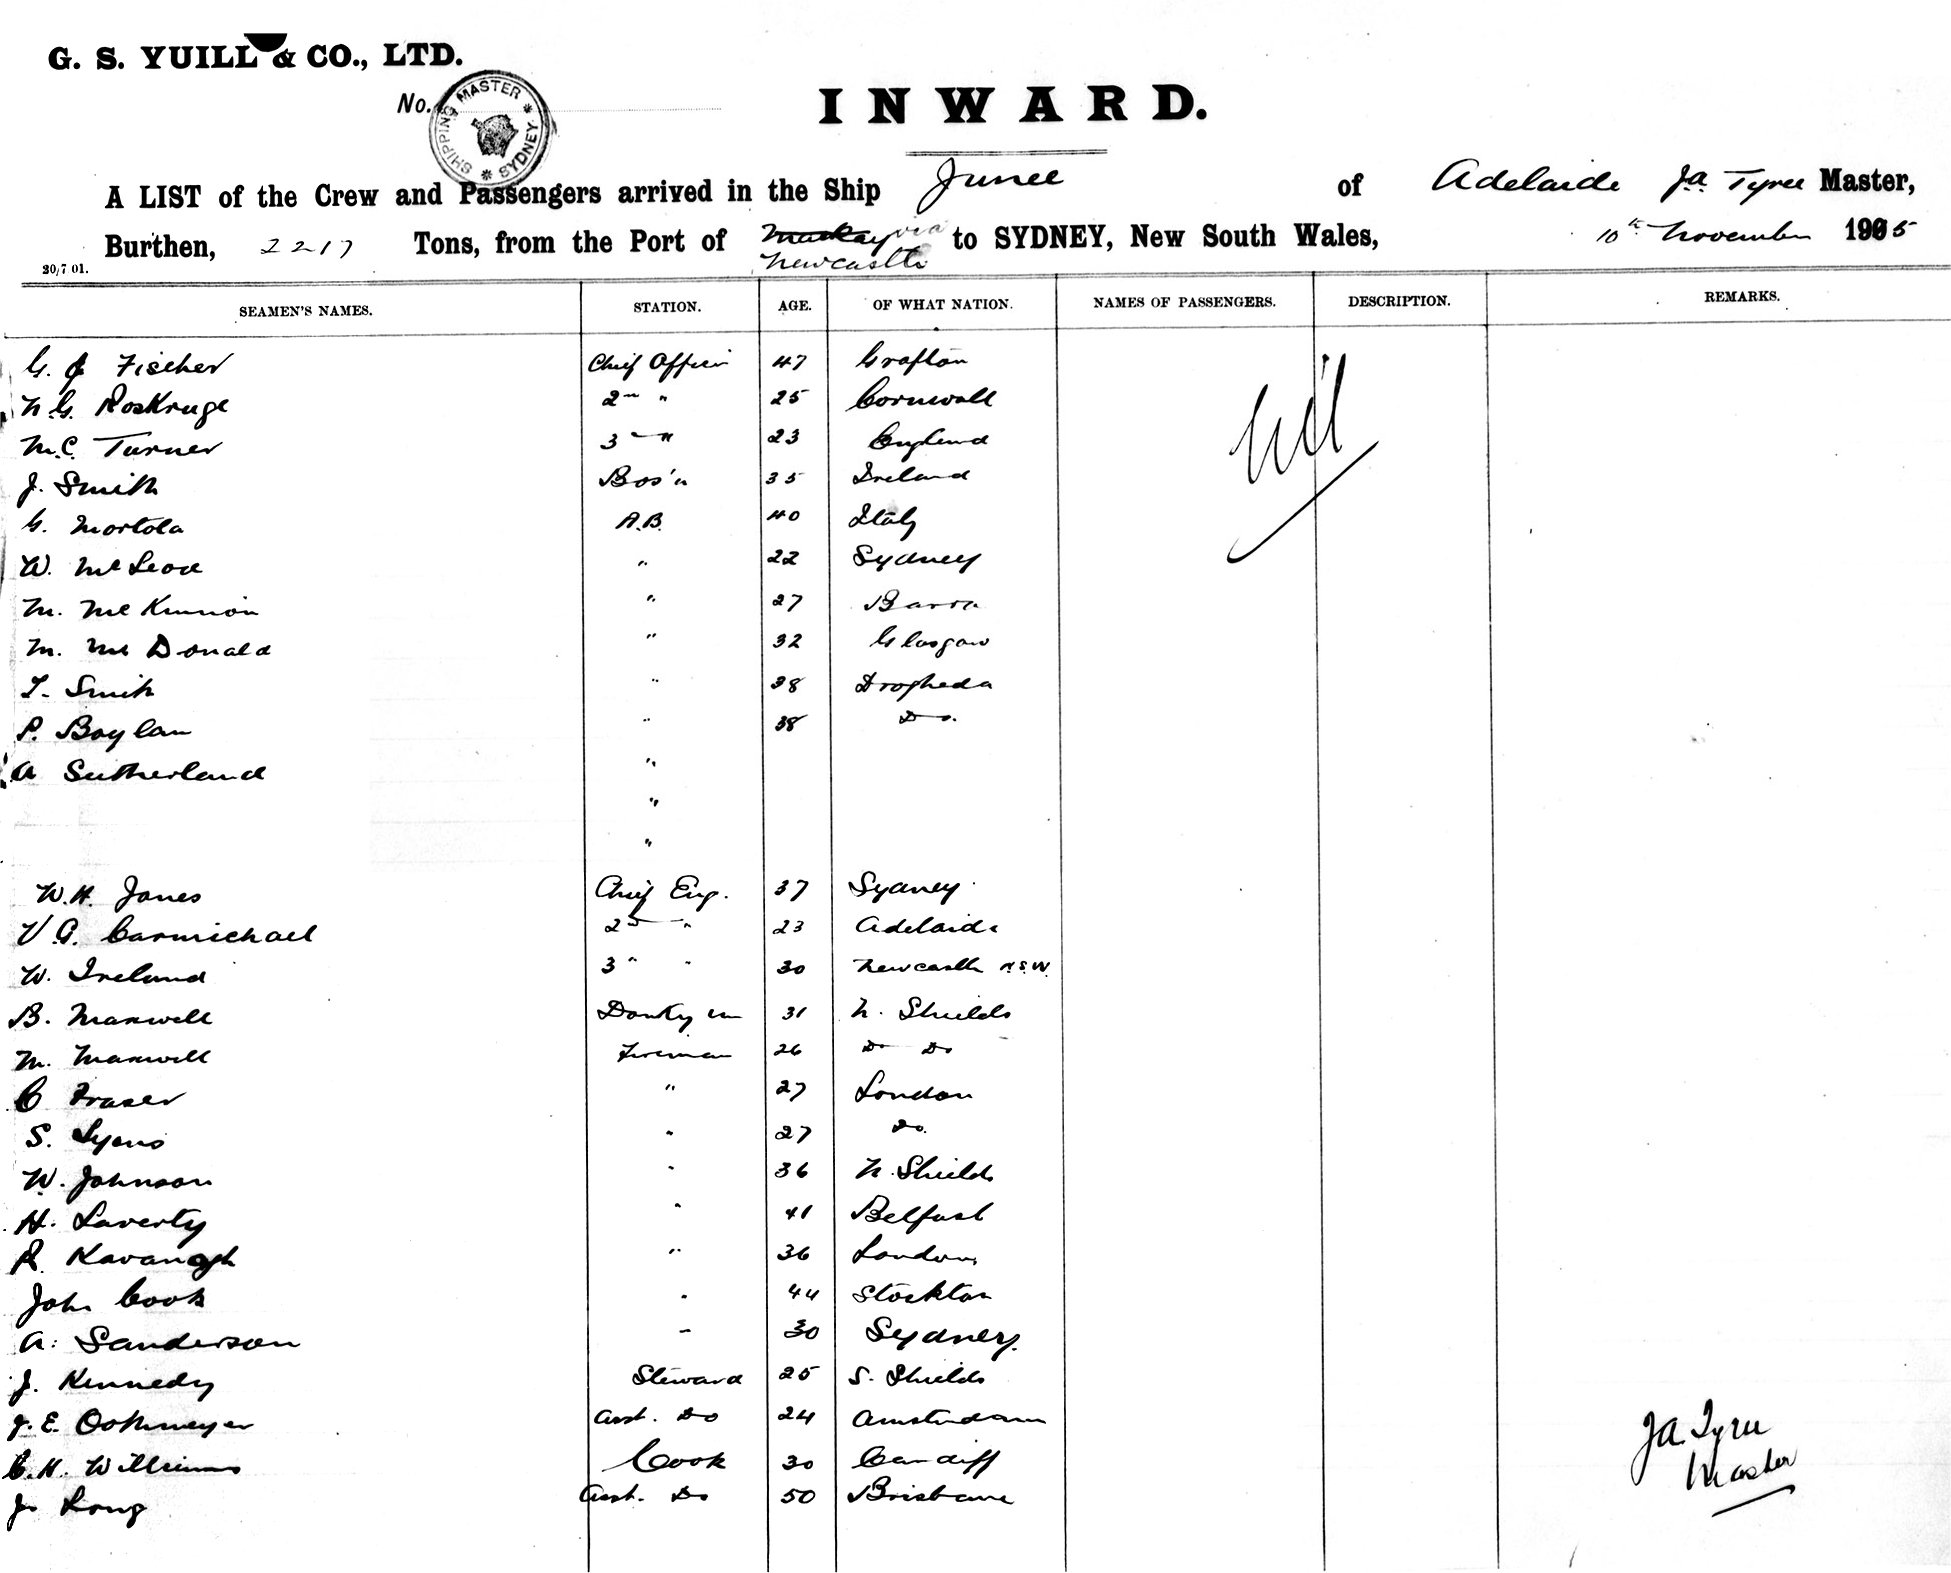 G. S. YUILL & CO., LTD.
No.
SHIPPING MASTER * SYDNEY *
INWARD.
A LIST of the Crew and Passengers arrived in the Ship Junee of Adelaide Ja. Tyree Master,
Burthen, 2217 Tons, from the Port of Mackay via Newcastle to SYDNEY, New South Wales, 10th November 1905
20/7 01.
SEAMEN'S NAMES. STATION. AGE. OF WHAT NATION. NAMES OF PASSENGERS. DESCRIPTION. REMARKS.
G. J Fischer Chief Officer 47 Grafton
N. G. Roskruge 2nd " 25 Cornwall
M. C. Turner 3 " 23 England
Nil
J. Smith Bos'n 35 Ireland
G. Mortola A.B. 40 Italy
W. McLeod " 22 Sydney
M. McKinnon " 27 Barra
M. McDonald " 32 Glasgow
T. Smith " 38 Drogheda
P. Boylan " 38 Do.
A Sutherland "
"
"
W. H. Jones Chief Eng. 37 Sydney
V G. Carmichael 2nd " 23 Adelaide
W. Ireland 3 " " 30 Newcastle N.S.W.
B. Maxwell Donkey m 31 N. Shields
M. Maxwell Fireman 26 Do Do
C Fraser " 27 London
S. Lyons " 27 Do.
W. Johnson " 36 N. Shields
H. Laverty " 41 Belfast
R. Kavanagh " 36 London
John Cook " 44 Stockton
A. Sanderson " 30 Sydney.
J. Kennedy Steward 25 S. Shields
J. E. Ookmeyer Asst. Do 24 Amsterdam
C. H. Williams Cook 30 Cardiff
J. Long Asst. Do 50 Brisbane
Ja. Tyree
Master